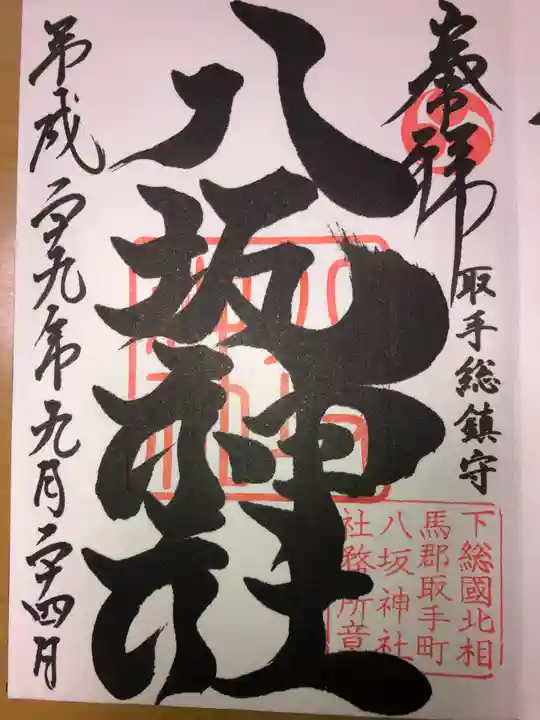 奉拝
取手総鎮守
下総國北相
馬郡取手町
八坂神社
社務所章
八坂神社
平成二十九年九月二十四日